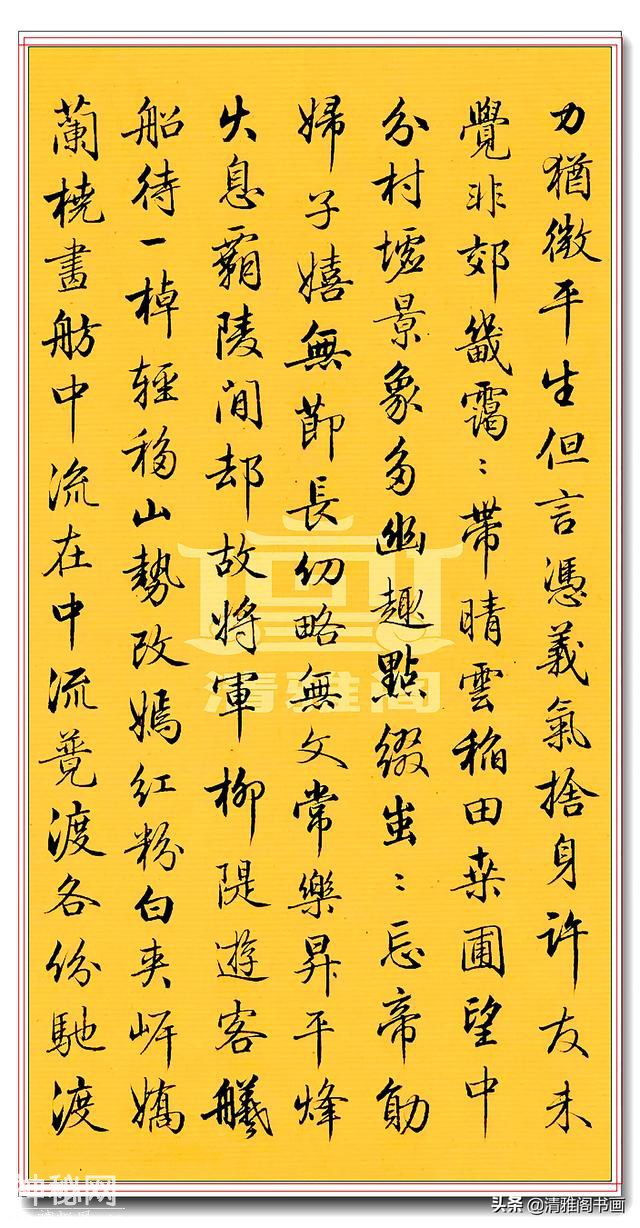 力猶微平生但言憑義氣捨身許友未
覺非郊畿靄〻帶晴雲稻田桒圃望中
分村墟景象多幽趣點綴蚩〻忘帝勛
婦子嬉無節長幼略無文常樂昇平烽
火息霸陵閒却故將軍柳隄遊客艤
船待一棹輕移山勢改嫣紅粉白夾岸嬌
蘭橈畫舫中流在中流競渡各份馳渡
清雅阁
神秘网
头条@清雅阁书画